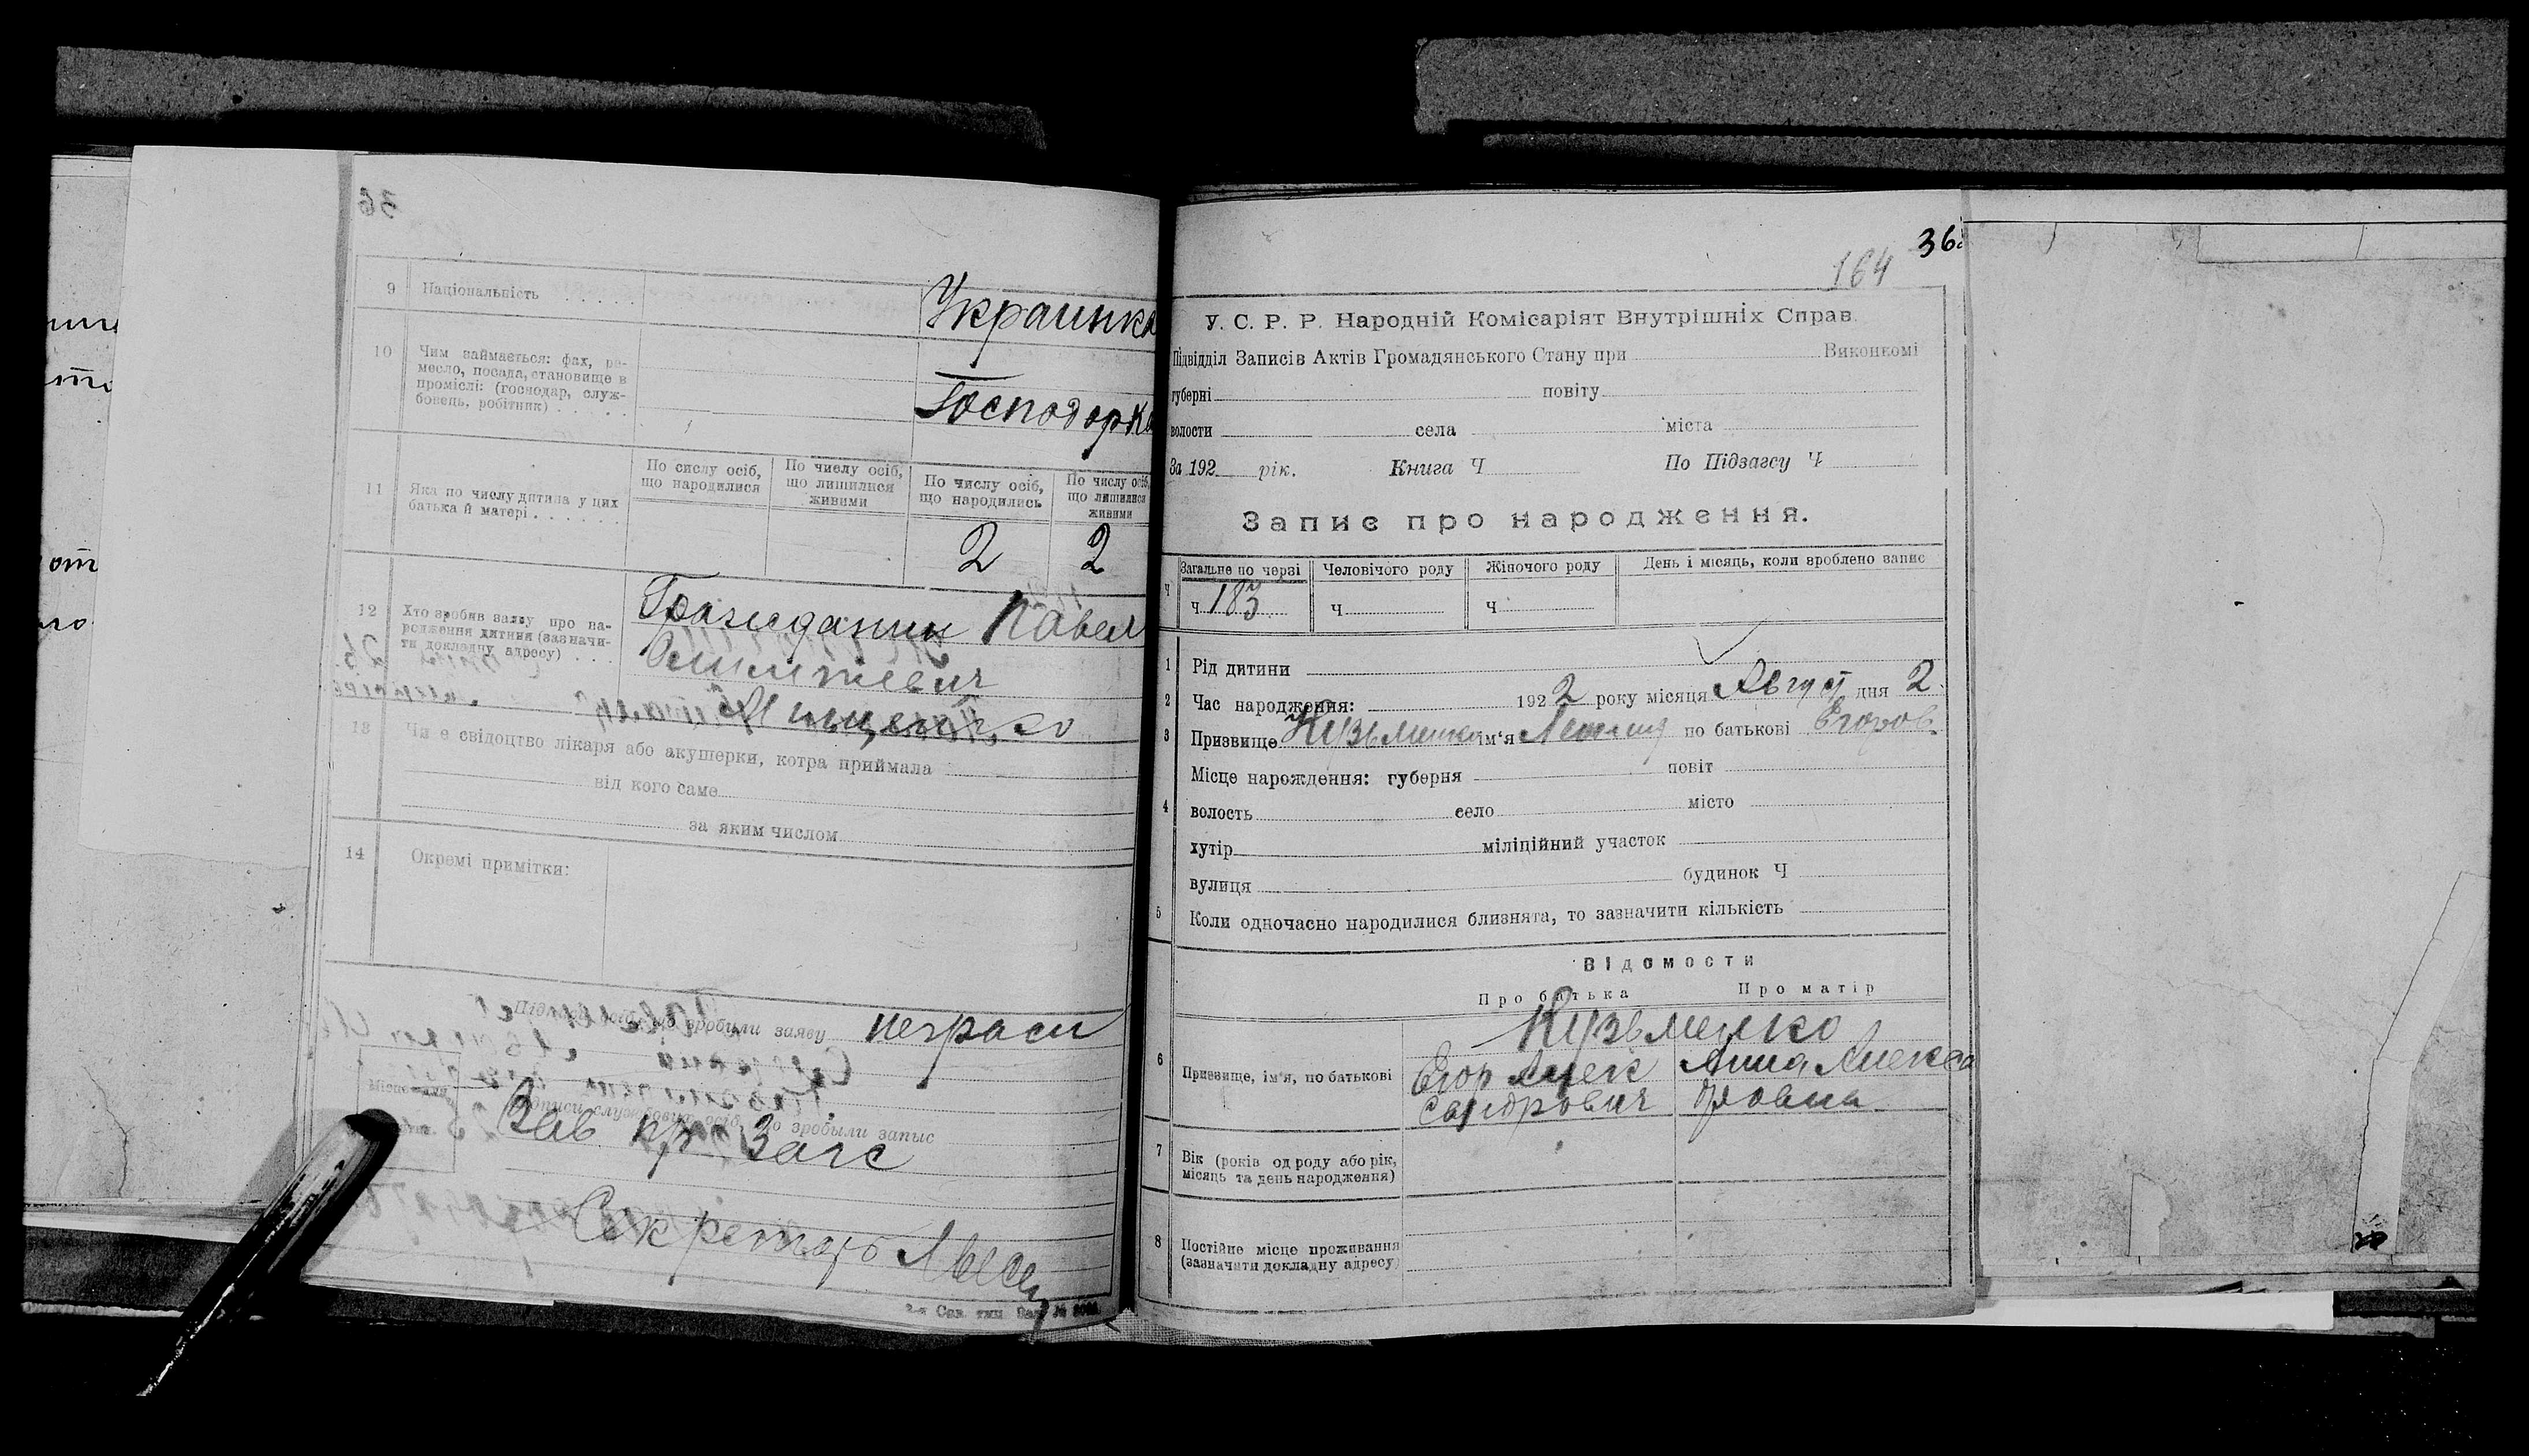 36
9 Національність . . . . . Украинка
10 Чим займається: фах, ре-
месло, посада, становище в
промислі: (господар, служ-
бовець, робітник) . . . . . Господорка
По сислу осіб, що народилися
По числу осіб, що лишилися живими
По числу осіб, що народились
По числу осіб, що лишилися живими
11 Яка по числу дитина у цих
батька й матері . . . . . . 2 2
12 Хто зробив заяву про на-
родження дитини (зазначи-
ти докладну адресу) . . . Гражданин Павел
13 Чи є свідоцтво лікаря або акушерки, котра приймала
від кого саме
за яким числом
14 Окремі примітки:
зробили заяву неграси
зробили запис
Зав Загс
Секретарь
36
164
У. С. Р. Р. Народній Комісаріят Внутрішніх Справ.
Підвідділ Записів Актів Громадянського Стану при Виконкомі
губерні повіту
волости села міста
За 192 рік. Книга Ч По Підзагсу Ч
Запис про народження.
Ч Загальне по черзі Человічого роду Жіночого роду День і місяць, коли зроблено запис
Ч 183 Ч Ч
1 Рід дитини
2 Час народження: 1922 року місяця Август дня 2
3 Призвище Кузьменко ім'я по батькові Егоров.
Місце народження: губерня повіт
4 волость село місто
хутір міліційний участок
вулиця будинок Ч
5 Коли одночасно народилися близнята, то зазначити кількість
Відомости
Про батька Про матір
Кузьменко
6 Призвище, ім'я, по батькові Егор Алек Анна Алекса
сандрович дровна
7 Вік (років од роду або рік,
місяць та день народження)
8 Постійне місце проживання
(зазначити докладну адресу)